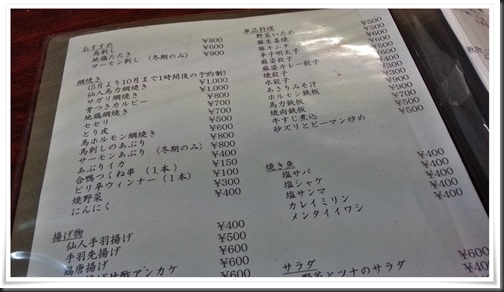 おすすめ
馬刺し ¥800
地鶏たたき ¥600
サーモン刺し (冬期のみ) ¥900
網焼き
(5月より10月まで1時間後の予約制)
仙人馬力網焼き ¥1,000
サガリ網焼き ¥1,000
骨つきカルビー ¥800
地鶏網焼き ¥700
セセリ ¥700
とり皮 ¥500
馬ホルモン網焼き ¥600
馬刺しのあぶり ¥800
サーモンあぶり (冬期のみ) ¥900
あぶりイカ ¥400
合鴨つくね串 (1本) ¥150
ピリ辛ウィンナー (1本) ¥100
焼野菜 ¥300
にんにく ¥400
揚げ物
仙人手羽揚げ ¥400
手羽先揚げ ¥500
鶏唐揚げ ¥600
アンカケ ¥600
単品料理
野菜いため
豚生姜焼
豚キムチ
辛子明太子
麻婆カレー餃子
焼餃子
水餃子
あさりみそ汁
ホルモン鉄板
馬力鉄板
焼肉鉄板
牛すじ煮込
砂ズリとピーマン炒め
焼き魚
塩サバ ¥400
塩シャケ ¥400
塩サンマ ¥400
カレイミリン ¥400
メンタイイワシ ¥400
サラダ
野菜とツナのサラダ